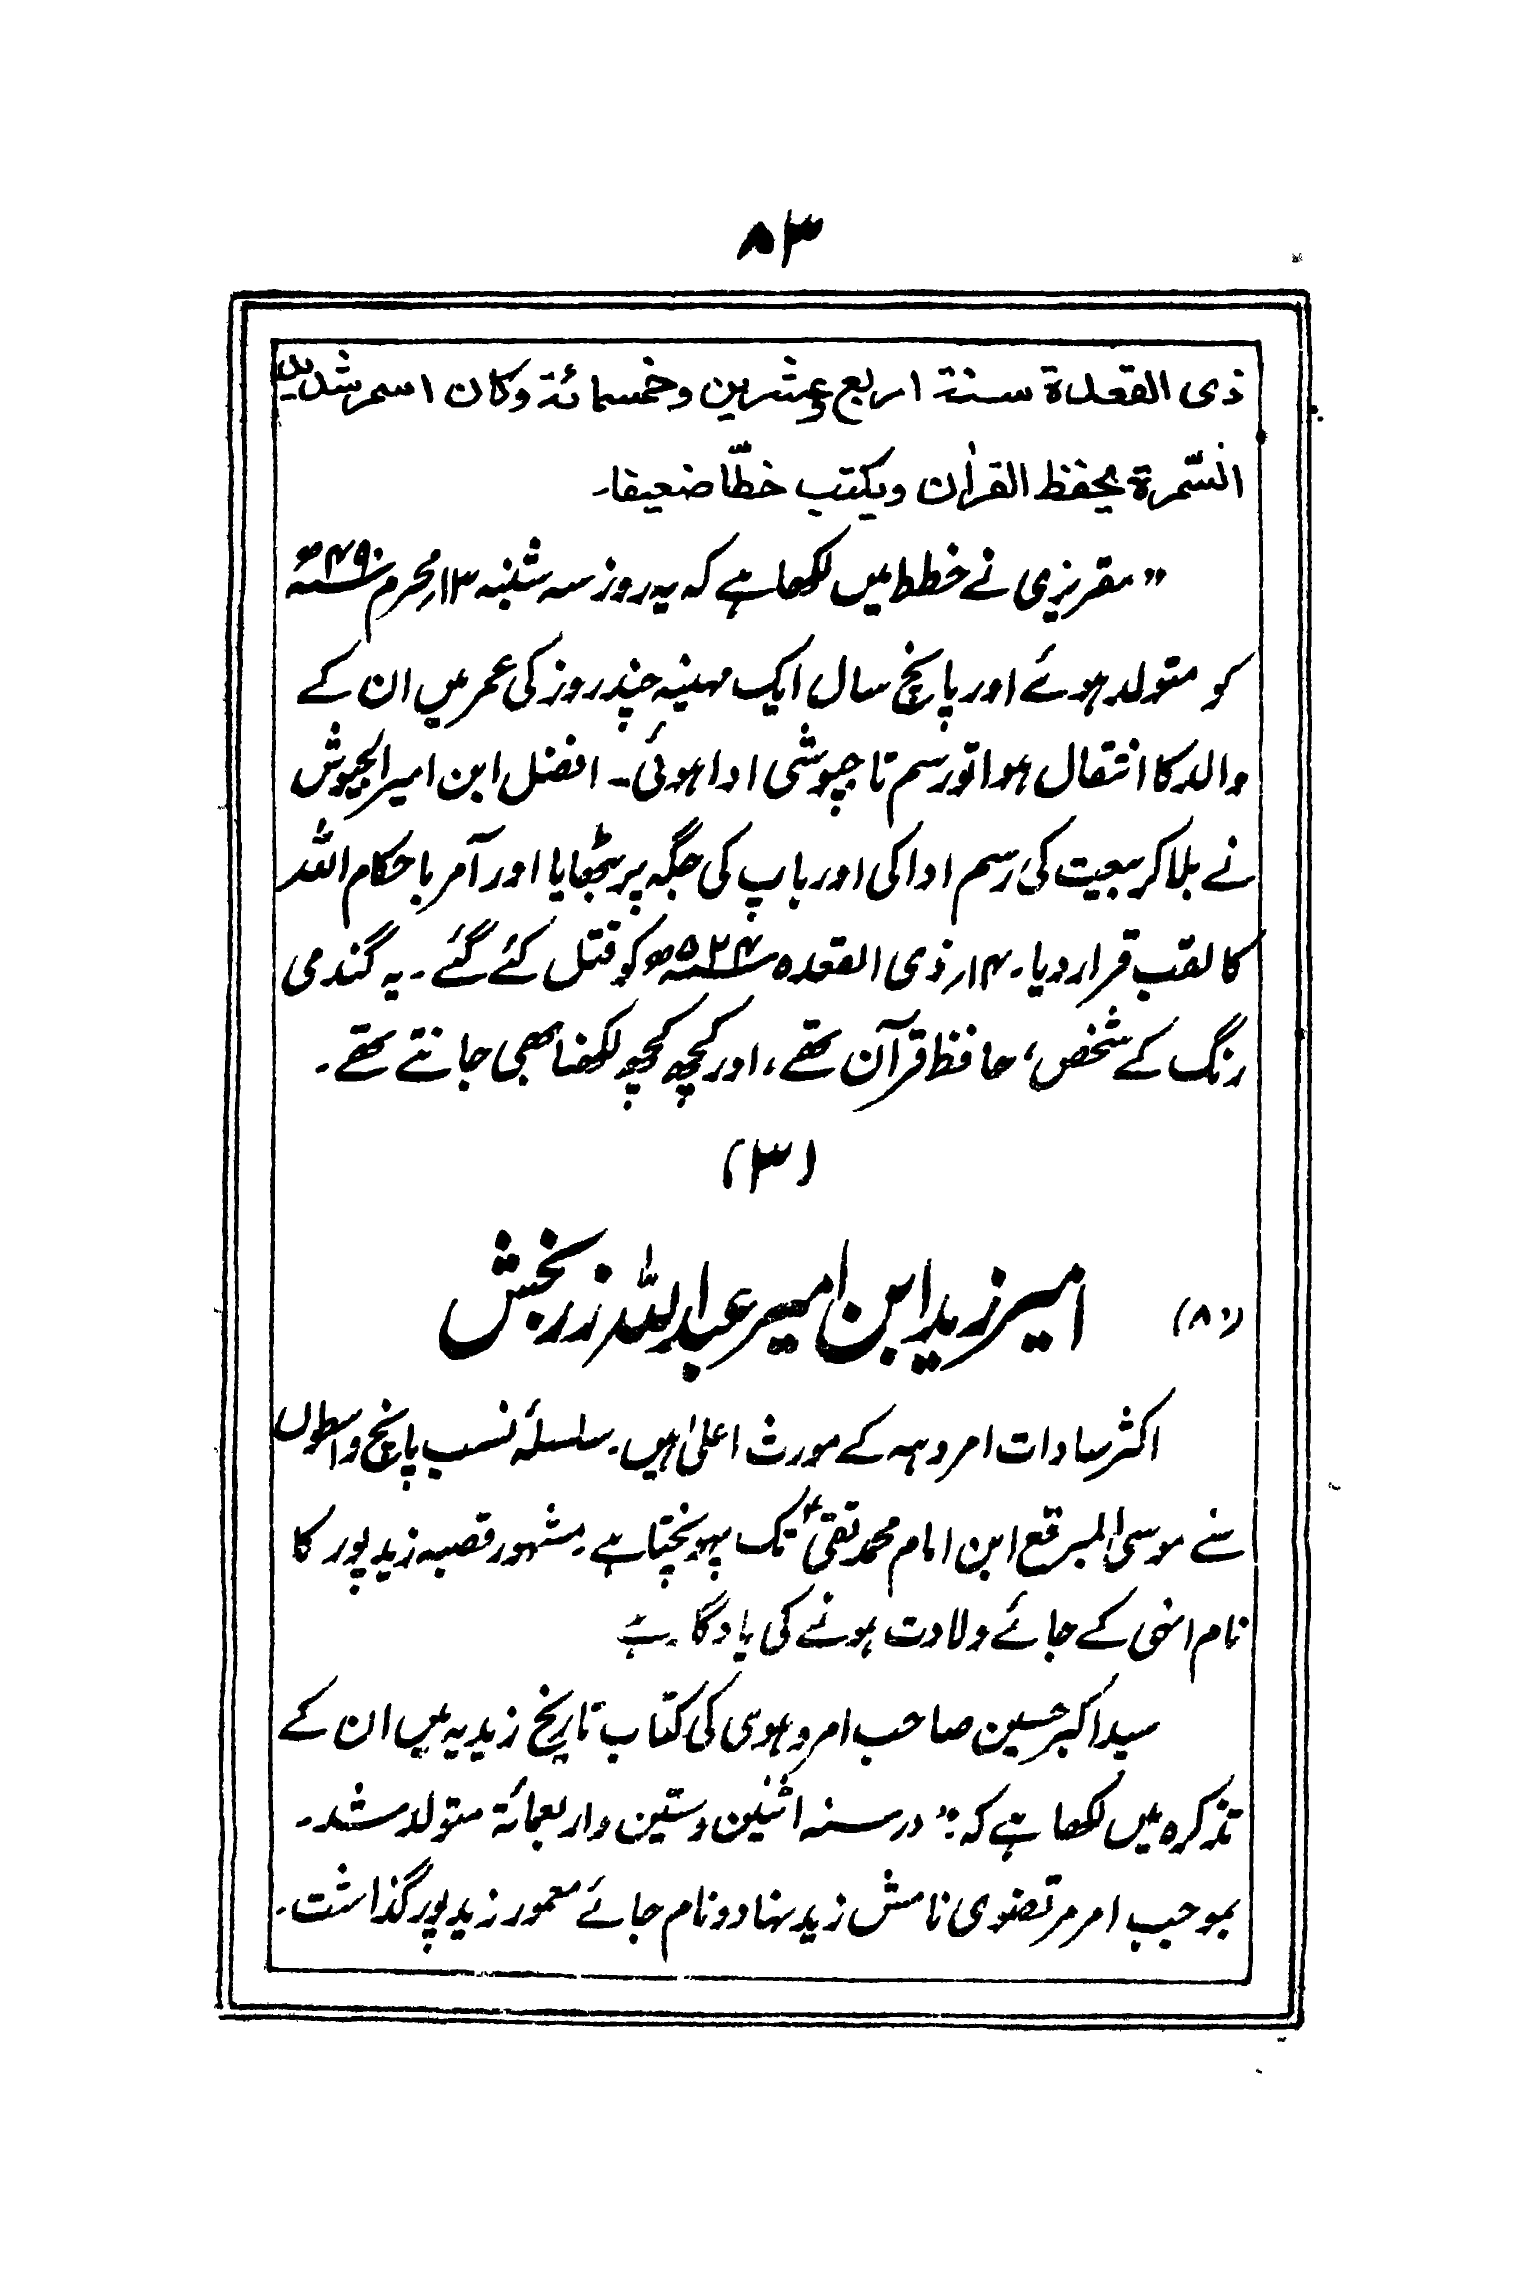 ۸۳
ذی القعدة سنة اربع وعشرین وخمسمائة وکان اسمر شدید
السّمرة یحفظ القراٰن ویکتب خطّا ضعیفا۔
”مقریزی نے خطط میں لکھا ہے کہ یہ روز سہ شنبہ ۱۳؍محرم ۴۹۰ھ
کو متولد ہوئے اور پانچ سال ایک مہینہ چند روز کی عمر میں ان کے
والد کا انتقال ہوا تو رسم تاجپوشی ادا ہوئی۔ افضل ابن امیر الجیوش
نے بلا کر بیعت کی رسم ادا کی اور باپ کی جگہ پر بٹھایا اور آمر باحکام اللہ
کا لقب قرار دیا۔ ۱۴؍ ذی القعدہ ۵۲۴ھ کو قتل کئے گئے۔ یہ گندمی
رنگ کے شخص، حافظ قرآن تھے، اور کچھ کچھ لکھنا بھی جانتے تھے۔
(۳)
(۸۰) امیر زید ابن امیر عبداللہ زربخش
اکثر سادات امروہہ کے مورث اعلیٰ ہیں۔ سلسلۂ نسب پانچ واسطوں
سے موسی المبرقع ابن امام محمد تقیؑ تک پہونچتا ہے۔ مشہور قصبہ زید پور کا
نام انہی کے جائے ولادت ہونے کی یادگار ہے
سید اکبر حسین صاحب امروہوی کی کتاب تاریخ زیدیہ میں ان کے
تذکرہ میں لکھا ہے کہ:۔ ”در سنہ اثنین وستین واربعمائة متولد شد۔
بموجب امر مرتضوی نامش زید نہاد و نام جائے معمور زید پور گذاشت۔